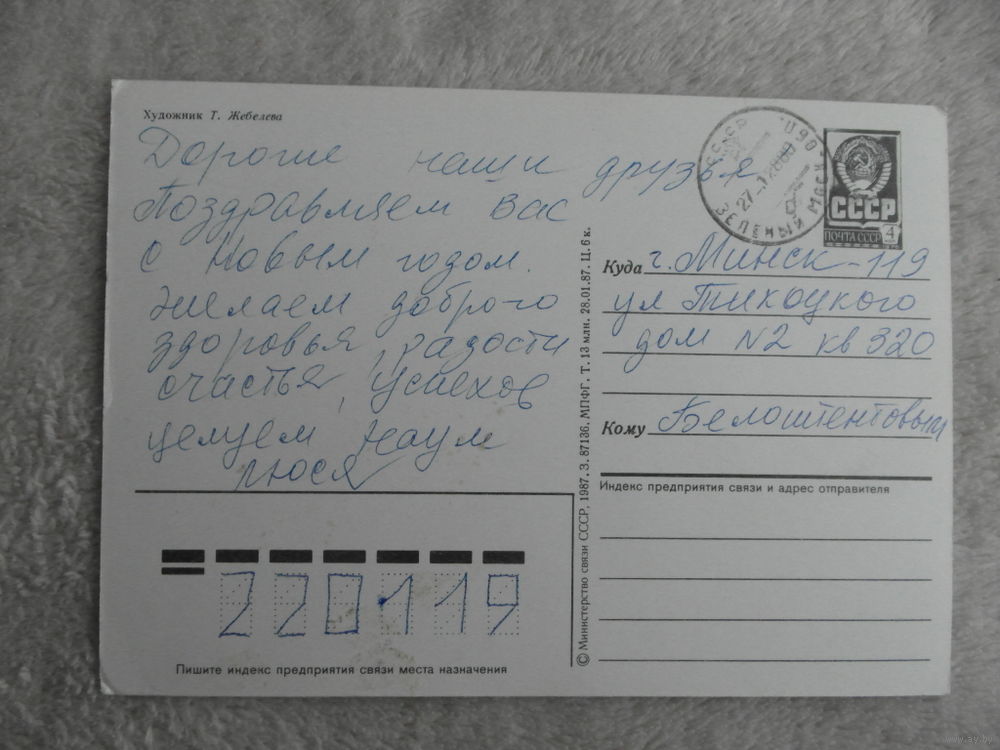 Художник Т. Жебелева
Дорогие наши друзья
Поздравляем вас
с Новым годом.
Желаем доброго
здоровья, радости
счастья, успехов
целуем Наум
Люся
СССР
ЗЕЛЕНЫЙ МОСК
СССР
ПОЧТА СССР 4
Куда г. Минск-119
ул Тикоцкого
дом N2 кв 320
Кому Белоштентовым
Индекс предприятия связи и адрес отправителя
© Министерство связи СССР, 1987. З. 87136, МПФГ. Т. 13 млн. 28.01.87. Ц. 6 к.
220119
Пишите индекс предприятия связи места назначения
www.ay.by